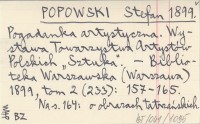 POPOWSKI Stefan 1899.
Pogadanka artystyczna. Wy-
stawa Towarzystwa Artystów
Polskich „Sztuka". — Biblio-
teka Warszawska (Warszawa)
1899, tom 2 (233): 157-165.
Na s. 164: o obrazach tatrzańskich.
BZ